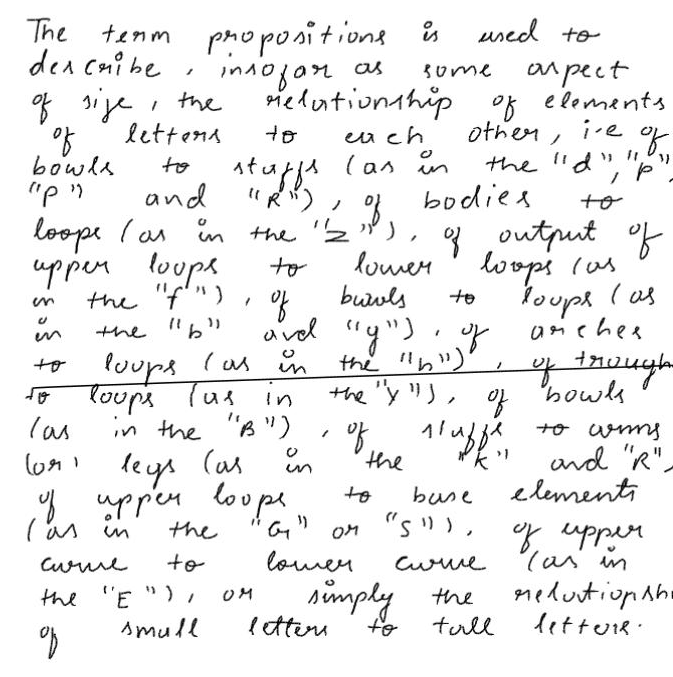 The term propositions is used to
describe, insofar as some aspect
of size, the relationship of elements
of letters to each other, i.e of
bowls to staffs (as in the "d", "b",
"p") and "R"), of bodies to
loops (as in the "z"), of output of
upper loops to lower loops (as
in the "f"), of bowls to loops (as
in the "b" and "y"), of arches
to loops (as in the "h"), of trough
to loops (as in the "y"), of bowls
(as in the "B"), of staffs to arms
(or) legs (as in the "K" and "R",
of upper loops to base elements
(as in the "G" or "S"), of upper
curve to lower curve (as in
the "E"), or simply the relationshi
of small letters to tall letters.